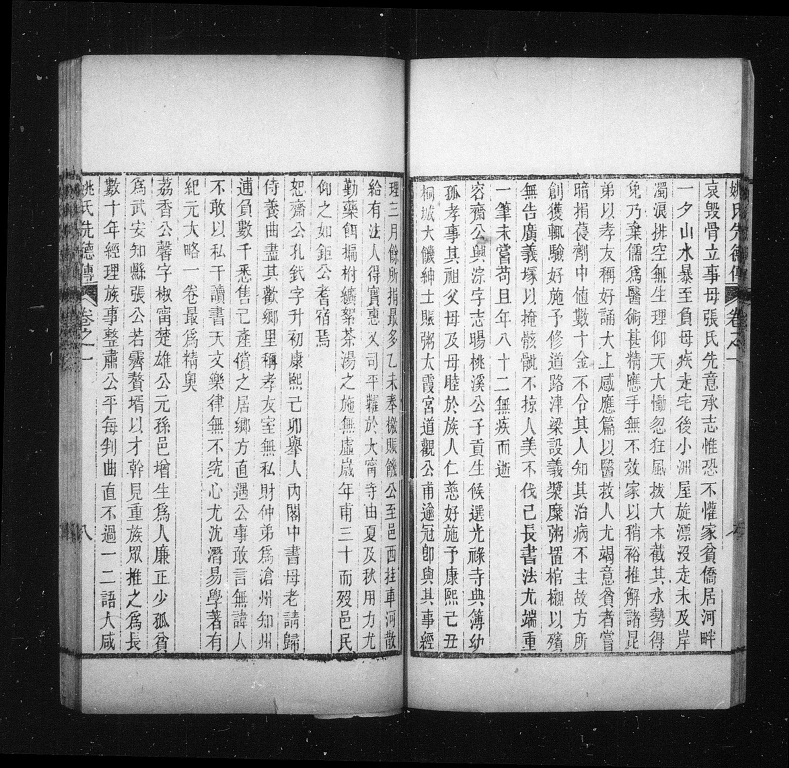 姚氏先德傳 卷之一
哀毀骨立事母張氏先意承志惟恐不懽家貧僑居河畔
一夕山水暴至負母疾走宅後小洲屋旋漂沒走未及岸
濁浪排空無生理仰天大慟忽狂風拔大木截其水勢得
免乃棄儒爲醫術甚精應手無不效家以稍裕推解諸昆
弟以孝友稱好誦太上感應篇以醫救人尤竭意貧者嘗
暗捐葠劑中値數十金不令其人知其治病不主故方所
創獲輒驗好施予修道路津梁設義漿糜粥置棺櫬以殯
無告廣義塚以掩骸骴不掠人美不伐己長書法尤端重
一筆未嘗苟且年八十二無疾而逝
容齋公與淙字志暘桃溪公子貢生候選光祿寺典簿幼
孤孝事其祖父母及母睦於族人仁慈好施予康熙己丑
桐城大饑紳士賑粥太霞宮道觀公甫逾冠卽與其事經
理三月餘所捐最多乙未奉檄賑饑公至邑西挂車河散
給有法人得實惠又司平糶於大甯寺由夏及秋用方尤
勤藥餌楄柎纊絮茶湯之施無虛歲年甫三十而歿邑民
仰之如鉅公耆宿焉
恕齋公孔鈵字升初康熙己卯舉人內閣中書母老請歸
侍養曲盡其歡鄉里稱孝友室無私財仲弟爲滄州知州
逋負數千悉售己產償之居鄉方直遇公事敢言無諱人
不敢以私干讀書天文樂律無不究心尤沈潛易學著有
紀元大略一卷最爲精奧
荔香公馨字椒甯楚雄公元孫邑增生爲人廉正少孤貧
爲武安知縣張公若霱贅壻以才幹見重族眾推之爲長
數十年經理族事整肅公平每判曲直不過一二語大咸
姚氏先德傳 卷之一 八